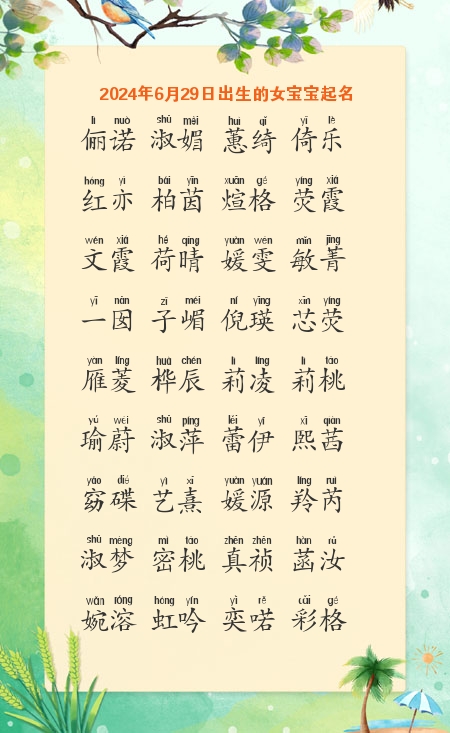 2024年6月29日出生的女宝宝起名
lì nuò shū mèi huì qǐ yǐ lè
俪诺 淑媚 蕙绮 倚乐
hóng yì bǎi yīn xuān gé yíng xiá
红亦 柏茵 煊格 荧霞
wén xiá hé qíng yuàn wén mǐn jīng
文霞 荷晴 媛雯 敏菁
yī nān zǐ méi ní yīng xīn yíng
一囡 子嵋 倪瑛 芯荧
yàn líng huà chén lì líng lì táo
雁菱 桦辰 莉凌 莉桃
yú wèi shū píng lěi yī xī qiàn
瑜蔚 淑萍 蕾伊 熙茜
yǎo dié yì xī yuàn yuán líng ruì
窈碟 艺熹 媛源 羚芮
shū mèng mì táo zhēn zhēn hàn rǔ
淑梦 密桃 真祯 菡汝
wǎn róng hóng yín yì rě cǎi gé
婉溶 虹吟 奕喏 彩格